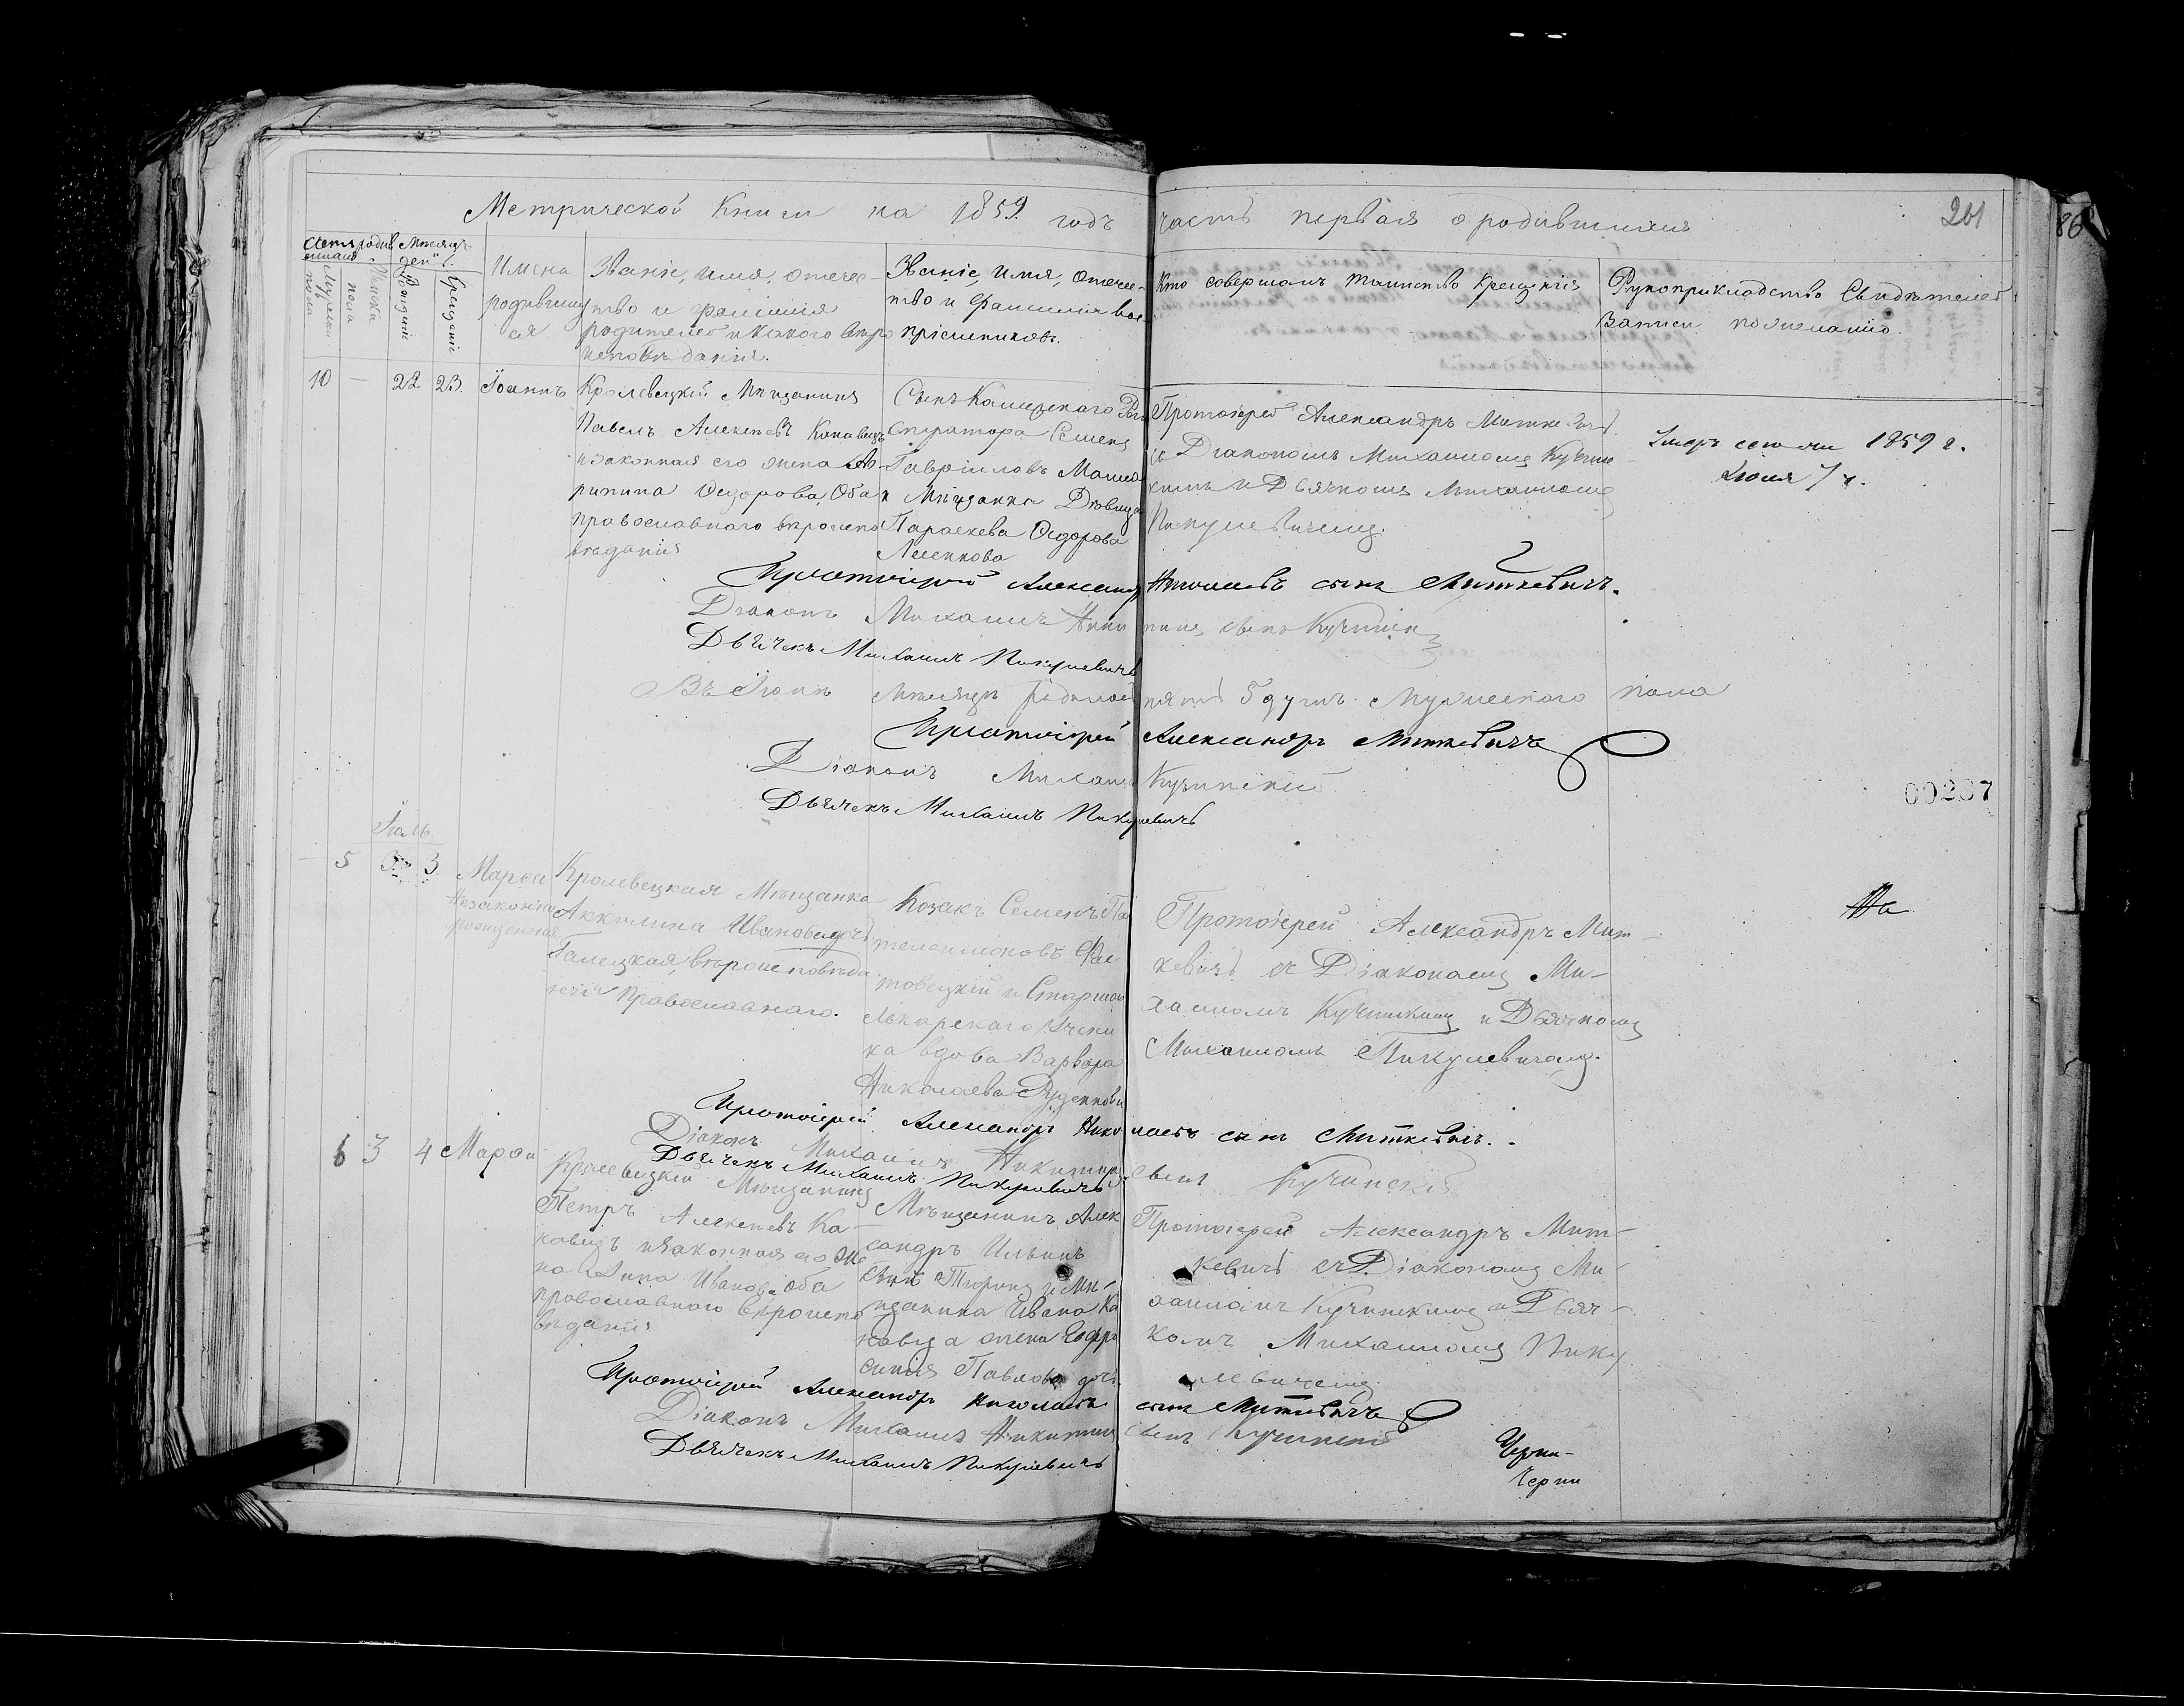 Метрической Книги на 1859 годъ часть первая о родившихся
201
86
Счетъ родившихся
Мужеска пола
Женска пола
Месяцъ и день
Рожденія
Крещенія
Имена родившихся
Званіе, имя, отечество и фамилія родителей и какого вероисповеданія.
Званіе, имя, отечество и фамилия воспріемниковъ.
Кто совершалъ таинство крещенія
Рукоприкладство свидетелей записи по желанію.
10 — 22 23. Іоаннъ
Кролевецкій Мещанинъ
Павелъ Алексеевъ Канавецъ
и законная его жена
Федорова, Оба
православнаго вероиспо
веданія
Сынъ
Семенъ
Гавріиловъ
и Мещанка Девица
Параскева Федорова
Протоіерей Александръ Миткевичъ
съ Діакономъ Михаиломъ Кучин
скимъ и Дьячкомъ Михаиломъ
Пикулевичемъ.
Умеръ 1859 г.
7 ч.
Протоіерей Александръ Николаевъ сынъ Миткевичъ.
Діаконъ Михаилъ Никитинъ сынъ Кучинскій
Дьячекъ Михаилъ Пикулевичъ
Въ Іюне месяце родилось пять 5 душъ мужеского пола
Протоіерей Александръ Миткевичъ
Діаконъ Михаилъ Кучинскій
Дьячекъ Михаилъ Пикулевичъ
00237
Іюль
— 5 3 Марфа
Незаконно
рожденная
Кролевецкая Мещанка
Аккилина Иванова дочь
Галецкая, вероисповеда
нія Православнаго.
Козакъ Семенъ Пан
телеимоновъ
и Старшаго
Лекарскаго Учени
ка вдова Варвара
Николаева Руденкова
Протоіерей Александръ Мит-
кевичъ съ Діакономъ Ми-
хаиломъ Кучинскимъ и Дьячкомъ
Михаиломъ Пикулевичемъ.
На
Протоіерей Александръ Николаевъ сынъ Миткевичъ.
Діаконъ Михаилъ Никитинъ сынъ Кучинскій
Дьячекъ Михаилъ Пикулевичъ
6 3 4 Марфа
Кролевецкій Мещанинъ
Петръ Алексеевъ Ка-
навецъ и законная его же
на Анна Иванова оба
православнаго вероиспо
веданія
Мещанинъ Алек
сандръ Ильинъ
сынъ Тюринъ и Ме-
щанина Ивана Ка
навца жена Евфро
синія Павлова дочь.
Протоіерей Александръ Мит-
кевичъ съ Діакономъ Ми-
хаиломъ Кучинскимъ и Дьяч-
комъ Михаиломъ Пику
левичемъ
Протоіерей Александръ Николаевъ сынъ Миткевичъ
Діаконъ Михаилъ Никитинъ сынъ Кучинскій
Дьячекъ Михаилъ Пикулевичъ
Черни-
Черни